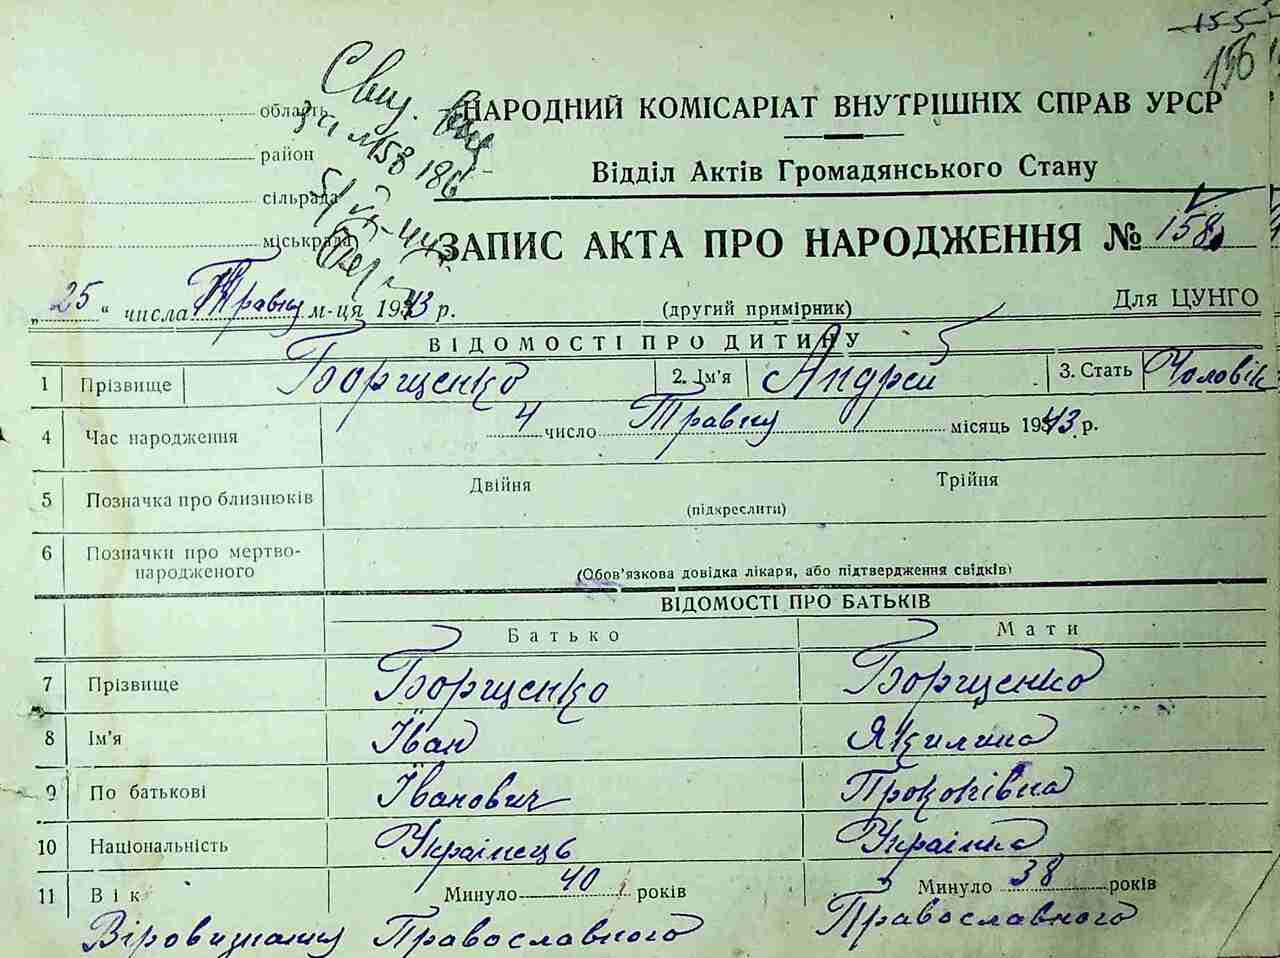 155
156
Свид. вид
область НАРОДНИЙ КОМІСАРІАТ ВНУТРІШНІХ СПРАВ УРСР
за №158 186
район
Відділ Актів Громадянського Стану
сільрада
5/VII-44
міськрада
ЗАПИС АКТА ПРО НАРОДЖЕННЯ № 158
„25“ числа Травня м-ця 1943 р. (другий примірник) Для ЦУНГО
ВІДОМОСТІ ПРО ДИТИНУ
1 Прізвище Борщенко 2. Ім'я Андрей 3. Стать Чоловік
4 Час народження 4 число Травня місяць 1943 р.
5 Позначка про близнюків Двійня Трійня
(підкреслити)
6 Позначки про мертво-
народженого
(Обов'язкова довідка лікаря, або підтвердження свідків)
ВІДОМОСТІ ПРО БАТЬКІВ
Батько Мати
7 Прізвище Борщенко Борщенко
8 Ім'я Іван Якилина
9 По батькові Іванович Прокопівна
10 Національність Украінець Украінка
11 Вік Минуло 40 років Минуло 38 років
Віровизнання Православного Православного